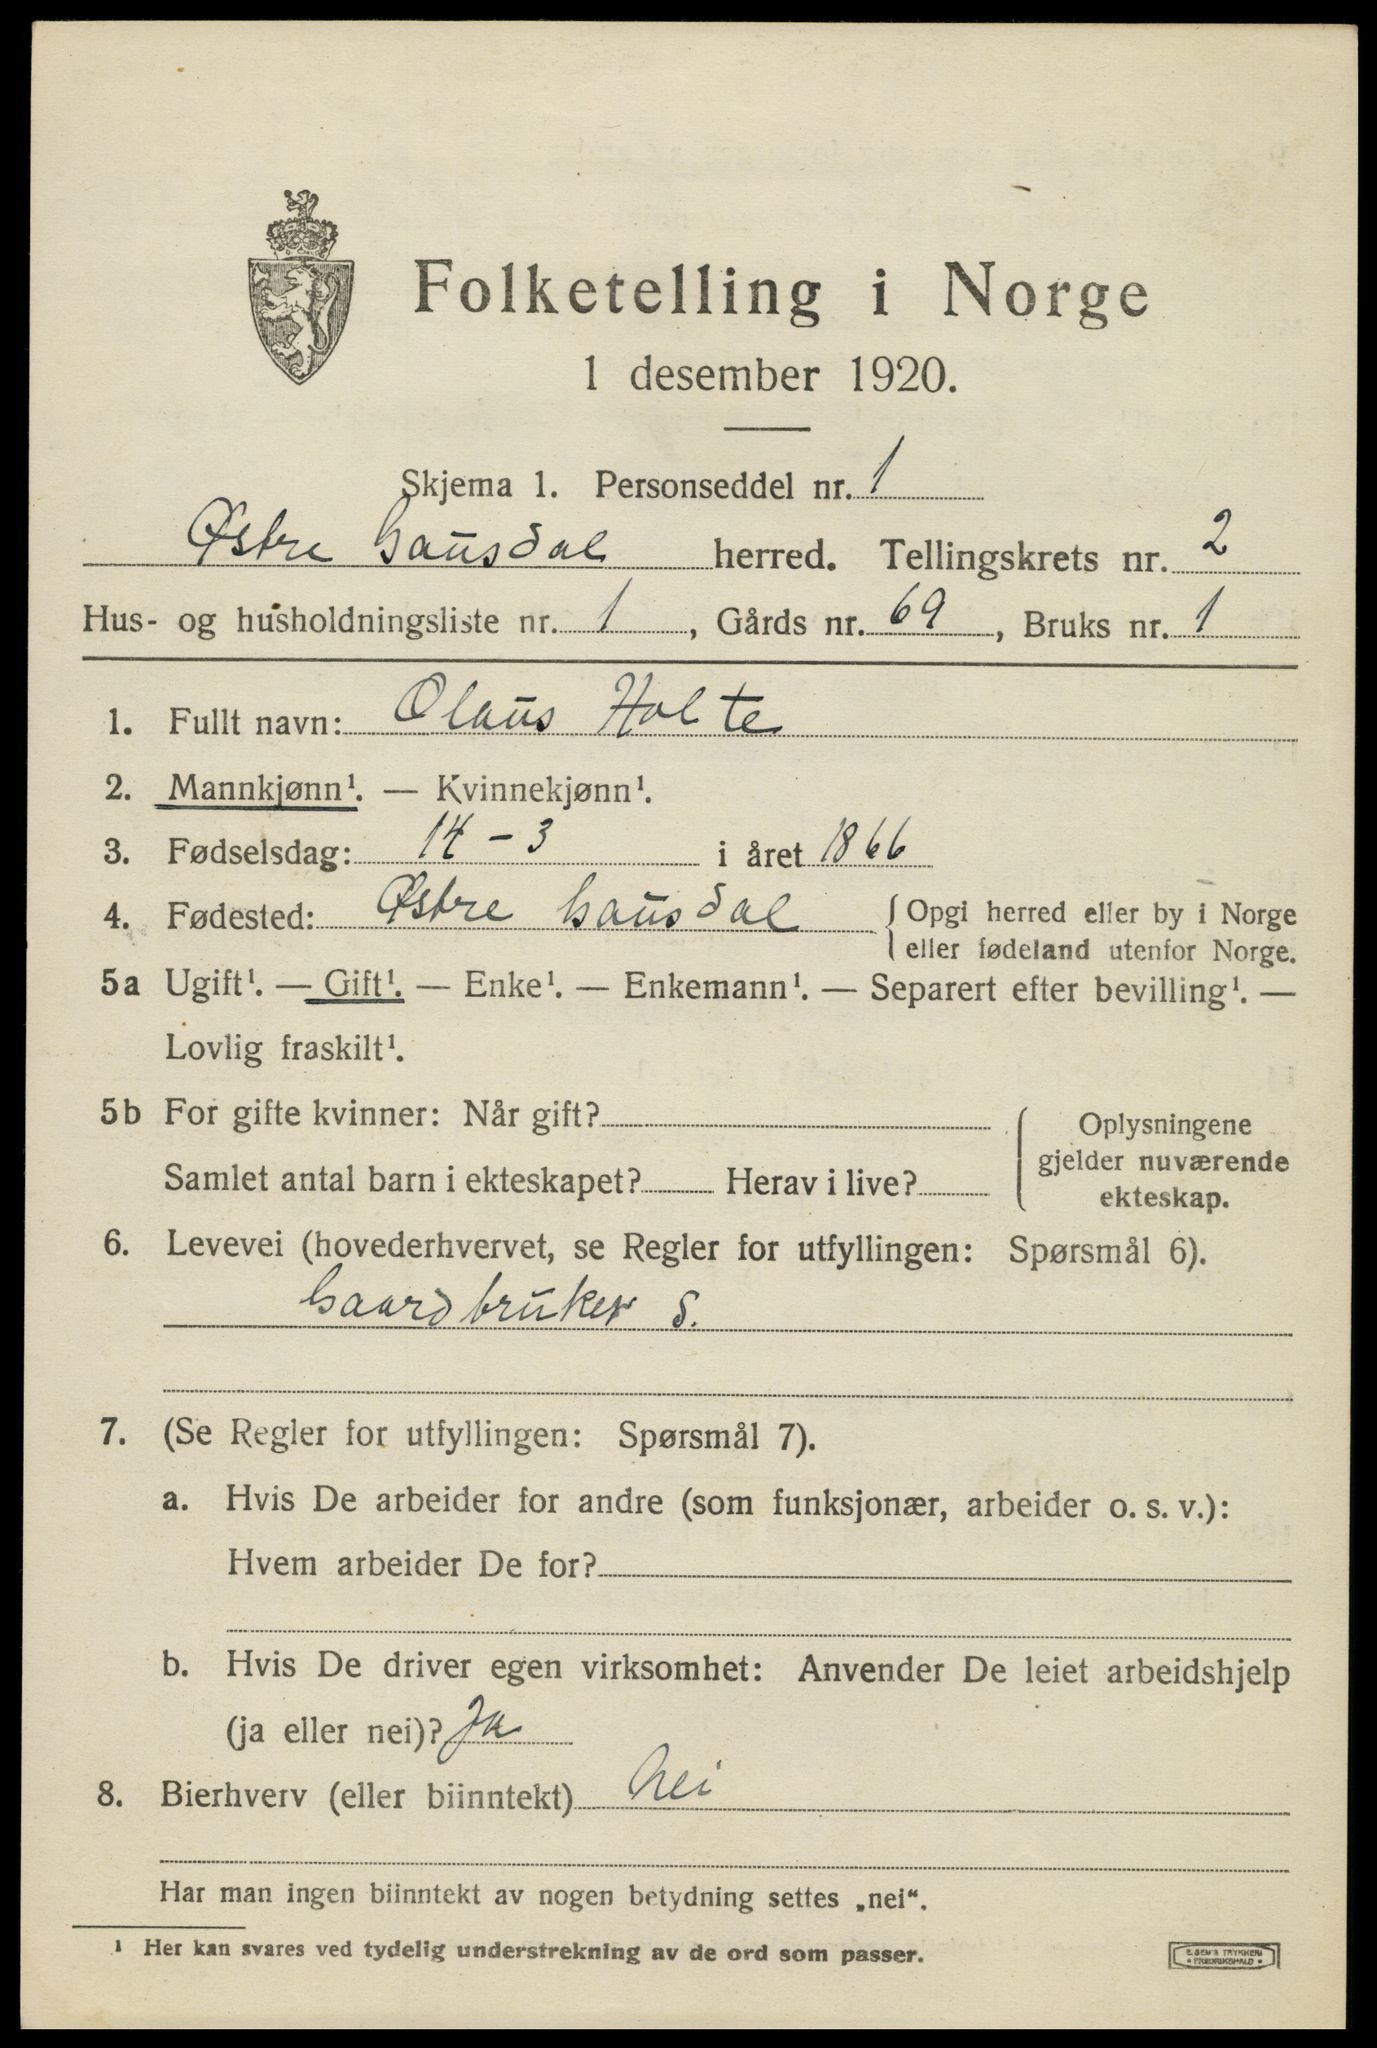 Folketelling i Norge
1 desember 1920.
Skjema 1. Personseddel nr. 1
Østre Gausdal herred. Tellingskrets nr. 2
Hus- og husholdningsliste nr. 1, Gårds nr. 69, Bruks nr. 1
1. Fullt navn: Olaus Holte
2. Mannkjønn¹. — Kvinnekjønn¹.
3. Fødselsdag: 14 - 3 i året 1866
4. Fødested: Østre Gausdal { Opgi herred eller by i Norge
eller fødeland utenfor Norge.
5a Ugift¹. — Gift¹. — Enke¹. — Enkemann¹. — Separert efter bevilling¹. —
Lovlig fraskilt¹.
5b For gifte kvinner: Når gift?
Samlet antal barn i ekteskapet? Herav i live?
Oplysningene
gjelder nuværende
ekteskap.
6. Levevei (hovederhvervet, se Regler for utfyllingen: Spørsmål 6).
Gaardbruker S.
7. (Se Regler for utfyllingen: Spørsmål 7).
a. Hvis De arbeider for andre (som funksjonær, arbeider o. s. v.):
Hvem arbeider De for?
b. Hvis De driver egen virksomhet: Anvender De leiet arbeidshjelp
(ja eller nei)? Ja
8. Bierhverv (eller biinntekt) Nei
Har man ingen biinntekt av nogen betydning settes „nei“.
¹ Her kan svares ved tydelig understrekning av de ord som passer.
E. SEM'S TRYKKERI
* FREDRIKSHALD *